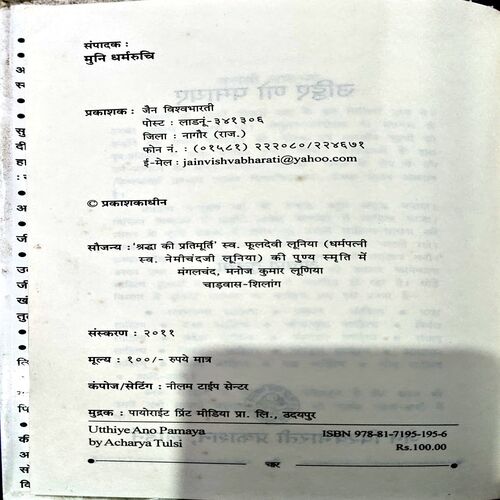 संपादक :
मुनि धर्मरुचि
प्रकाशक : जैन विश्वभारती
पोस्ट : लाडनूं-३४१३०६
जिला : नागौर (राज.)
फोन नं. : (०१५८१) २२२०८०/२२४६७१
ई-मेल : jainvishvabharati@yahoo.com
© प्रकाशकाधीन
सौजन्य : 'श्रद्धा की प्रतिमूर्ति' स्व. फूलदेवी लूनिया (धर्मपत्नी
स्व. नेमीचंदजी लूनिया) की पुण्य स्मृति में
मंगलचंद, मनोज कुमार लूणिया
चाड़वास-शिलांग
संस्करण : २०११
मूल्य : १००/- रुपये मात्र
कंपोज/सेटिंग : नीलम टाईप सेन्टर
मुद्रक : पायोराईट प्रिंट मीडिया प्रा. लि., उदयपुर
Utthiye Ano Pamaya ISBN 978-81-7195-195-6
by Acharya Tulsi Rs.100.00
चार